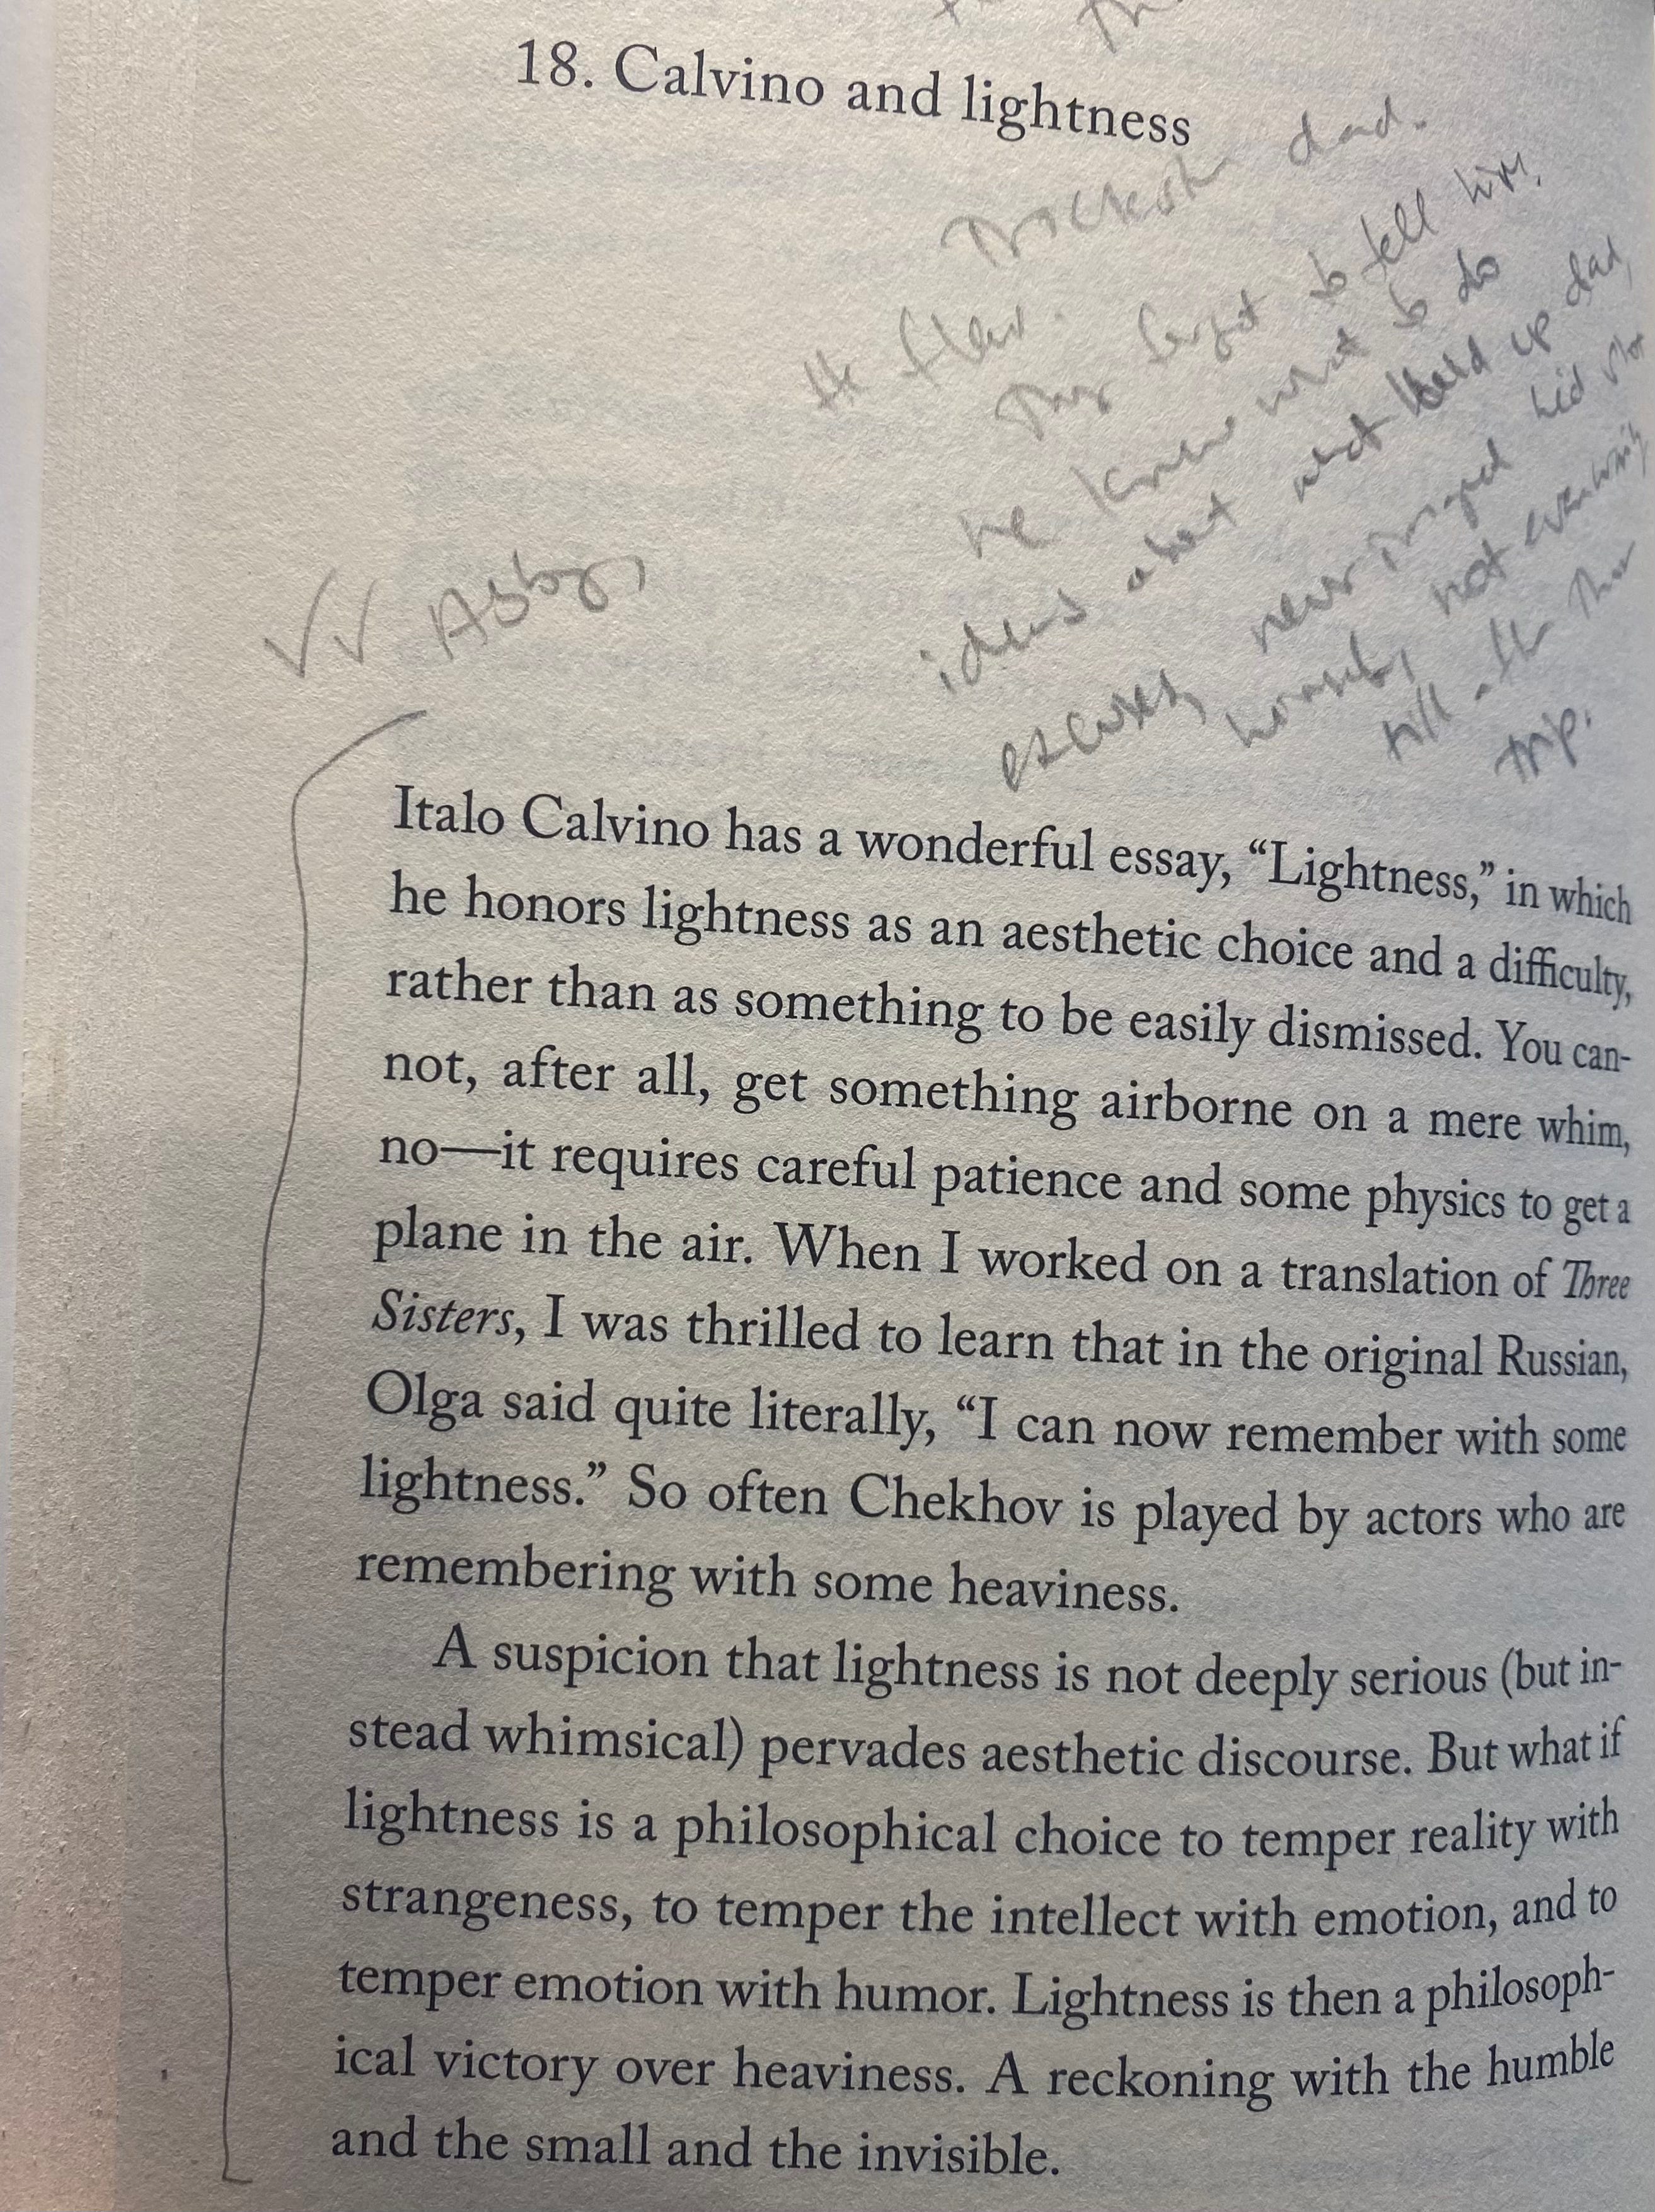 18. Calvino and lightness
dad.
He flew.
They forgot to tell him.
he knew what to do
ideas about what held up dad,
excuses, never inged hid
himself, not even
till
trip.
√√ Abby,
Italo Calvino has a wonderful essay, “Lightness,” in which
he honors lightness as an aesthetic choice and a difficulty,
rather than as something to be easily dismissed. You can-
not, after all, get something airborne on a mere whim,
no—it requires careful patience and some physics to get a
plane in the air. When I worked on a translation of Three
Sisters, I was thrilled to learn that in the original Russian,
Olga said quite literally, “I can now remember with some
lightness.” So often Chekhov is played by actors who are
remembering with some heaviness.
A suspicion that lightness is not deeply serious (but in-
stead whimsical) pervades aesthetic discourse. But what if
lightness is a philosophical choice to temper reality with
strangeness, to temper the intellect with emotion, and to
temper emotion with humor. Lightness is then a philosoph-
ical victory over heaviness. A reckoning with the humble
and the small and the invisible.